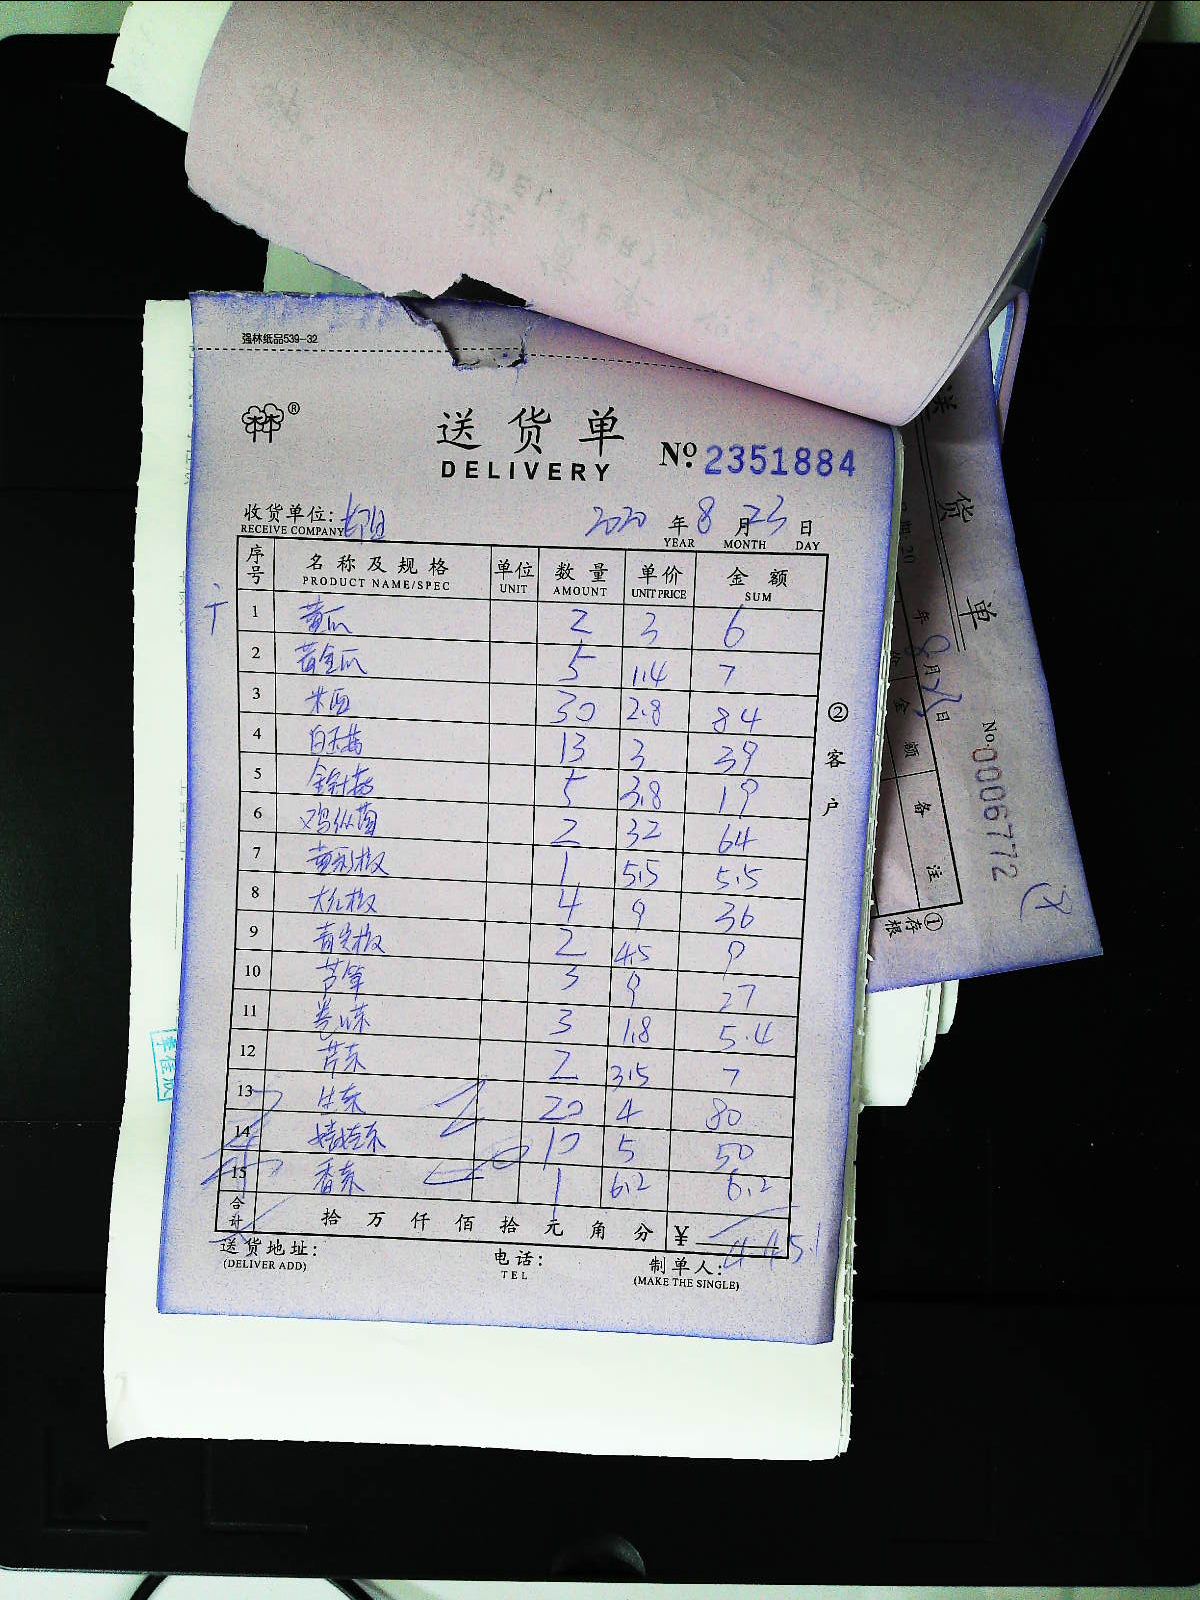 强林纸品539-32
送货单
DELIVERY
№ 2351884
收货单位:
RECEIVE COMPANY
2020 年 8 月 23 日
YEAR MONTH DAY
序号 名称及规格 单位 数量 单价 金额
PRODUCT NAME/SPEC UNIT AMOUNT UNIT PRICE SUM
1 黄瓜 2 3 6
2 黄金瓜 5 1.4 7
3 30 2.8 84
4 白玉菇 13 3 39
5 金针菇 5 3.8 19
6 鸡纵菌 2 32 64
7 1 5.5 5.5
8 大红椒 4 9 36
9 青尖椒 2 4.5 9
10 芦笋 3 9 27
11 3 1.8 5.4
12 芹菜 2 3.5 7
13 生菜 20 4 80
14 娃娃菜 10 5 50
15 香菜 1 6.2 6.2
合计 拾 万 仟 佰 拾 元 角 分 ¥ 445.1
送货地址:
(DELIVER ADD)
电话:
TEL
制单人:
(MAKE THE SINGLE)
②客户
送货单
年 8 月 日
金额 备注
No.0006772
①存根